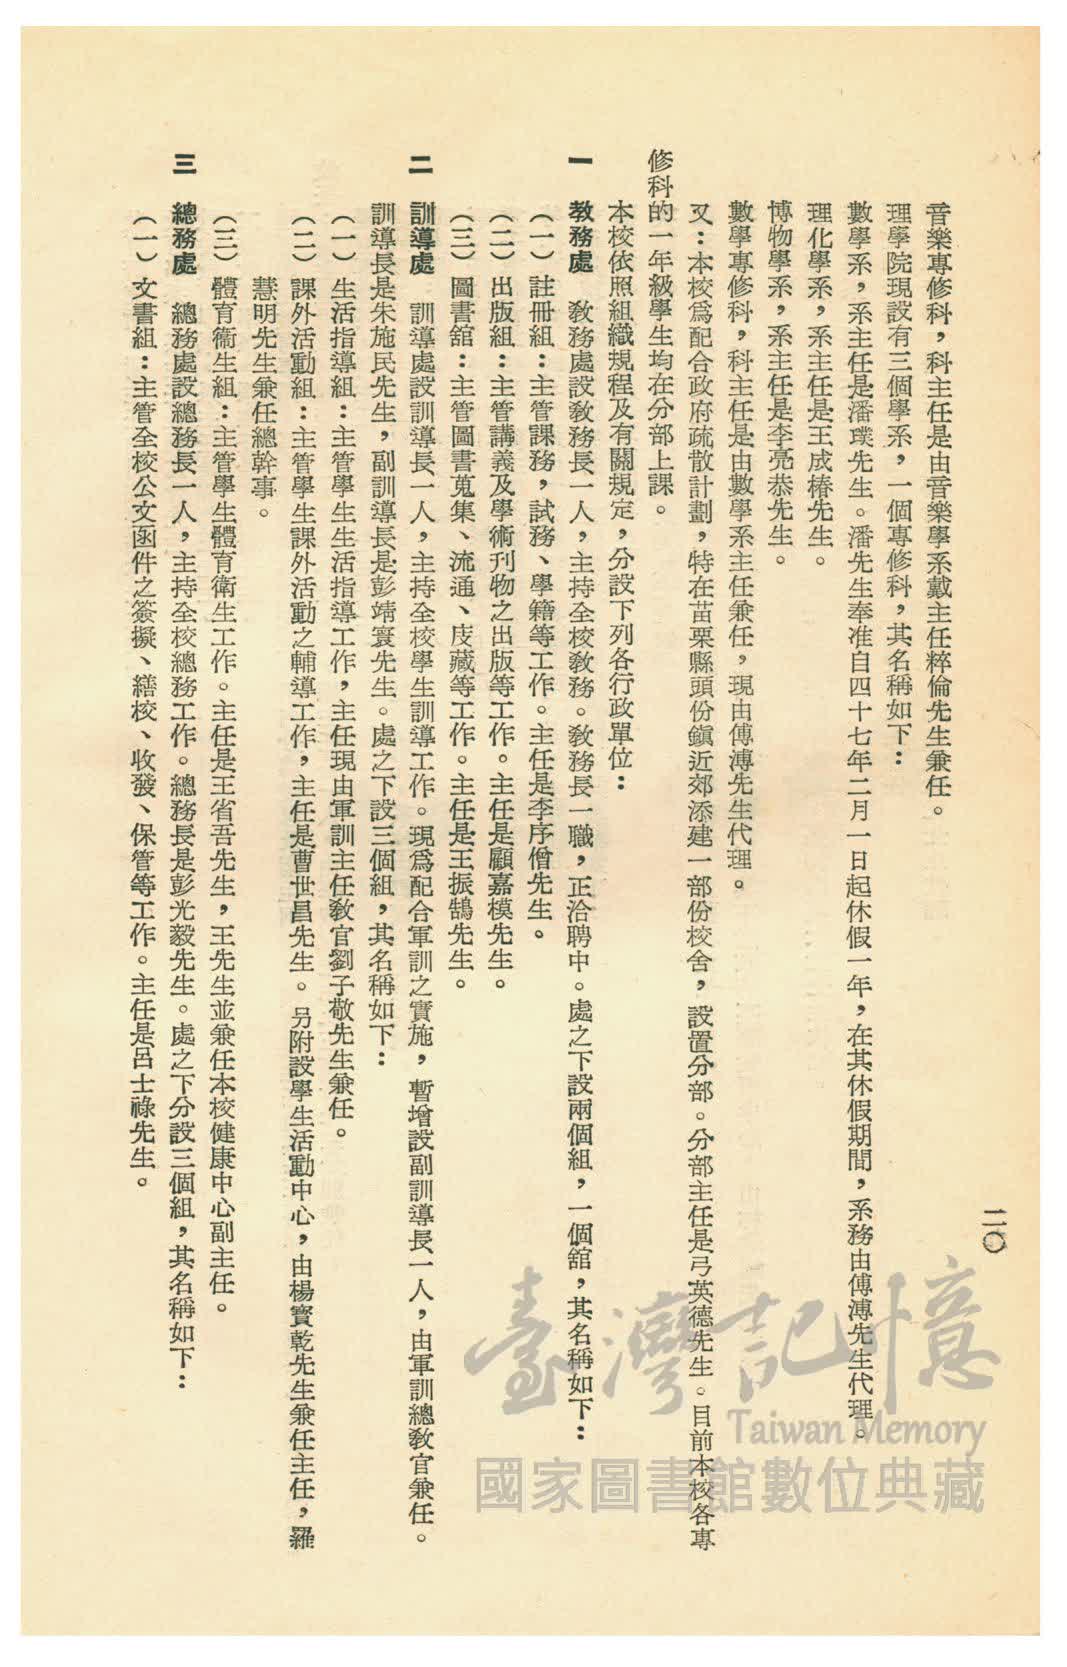 二〇
音樂專修科，科主任是由音樂學系戴主任粹倫先生兼任。
理學院現設有三個學系，一個專修科，其名稱如下：
數學系，系主任是潘璞先生。潘先生奉准自四十七年二月一日起休假一年，在其休假期間，系務由傅溥先生代理。
理化學系，系主任是王成椿先生。
博物學系，系主任是李亮恭先生。
數學專修科，科主任是由數學系主任兼任，現由傅溥先生代理。
又：本校爲配合政府疏散計劃，特在苗栗縣頭份鎭近郊添建一部份校舍，設置分部。分部主任是弓英德先生。目前本校各專
修科的一年級學生均在分部上課。
本校依照組織規程及有關規定，分設下列各行政單位：
一　教務處　教務處設教務長一人，主持全校教務。教務長一職，正洽聘中。處之下設兩個組，一個舘，其名稱如下：
（一）註冊組：主管課務，試務、學籍等工作。主任是李序僧先生。
（二）出版組：主管講義及學術刊物之出版等工作。主任是顧嘉模先生。
（三）圖書舘：主管圖書蒐集、流通、庋藏等工作。主任是王振鵠先生。
二　訓導處　訓導處設訓導長一人，主持全校學生訓導工作。現爲配合軍訓之實施，暫增設副訓導長一人，由軍訓總教官兼任。
訓導長是朱施民先生，副訓導長是彭靖寰先生。處之下設三個組，其名稱如下：
（一）生活指導組：主管學生生活指導工作，主任現由軍訓主任教官劉子敬先生兼任。
（二）課外活動組：主管學生課外活動之輔導工作，主任是曹世昌先生。另附設學生活動中心，由楊寳乾先生兼任主任，羅
慧明先生兼任總幹事。
（三）體育衞生組：主管學生體育衞生工作。主任是王省吾先生，王先生並兼任本校健康中心副主任。
三　總務處　總務處設總務長一人，主持全校總務工作。總務長是彭光毅先生。處之下分設三個組，其名稱如下：
（一）文書組：主管全校公文函件之簽擬、繕校、收發、保管等工作。主任是呂士祿先生。
臺灣記憶
Taiwan Memory
國家圖書館數位典藏